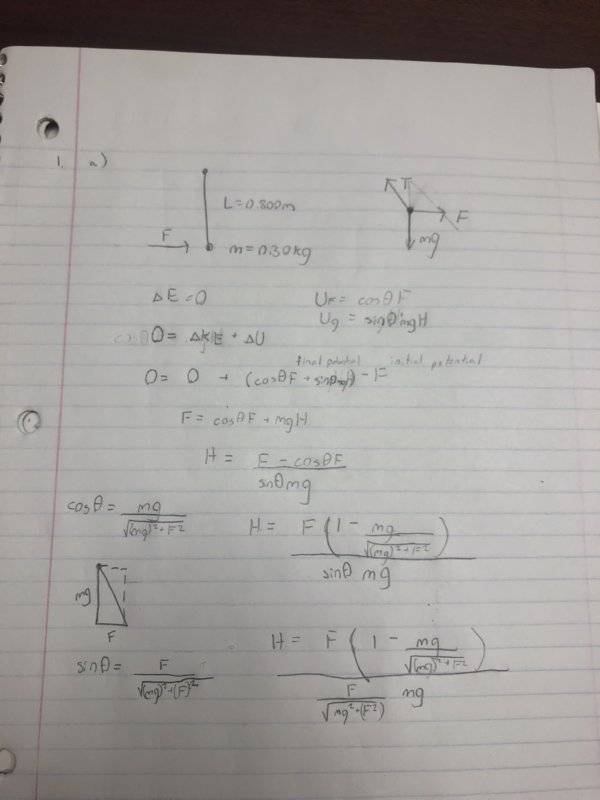 1. a)
L = 0.800m
T
F
F
m = 0.30kg
mg
ΔE = 0
U_F = cosθF
U_g = sinθmgH
0 = ΔKE + ΔU
final potential initial potential
0 = 0 + (cosθF + sinθmgH) - F
F = cosθF + mgH
H = (F - cosθF) / (sinθmg)
cosθ = mg / √((mg)²+F²)
H = F(1 - mg / √((mg)²+F²)) / (sinθ mg)
mg
F
sinθ = F / √((mg)²+(F)²)
H = F(1 - mg / √((mg)²+F²)) / (F / √(mg²+(F²)) mg)